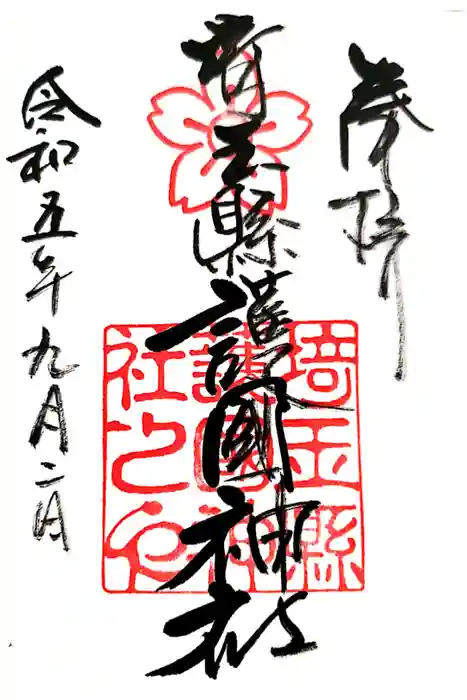 奉拝
埼玉縣護國神社
令和五年九月二日
埼玉縣
護國神
社之印